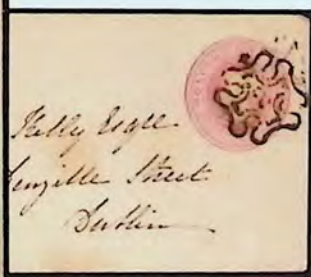 Kelly Esqre
Denzille Street
Dublin